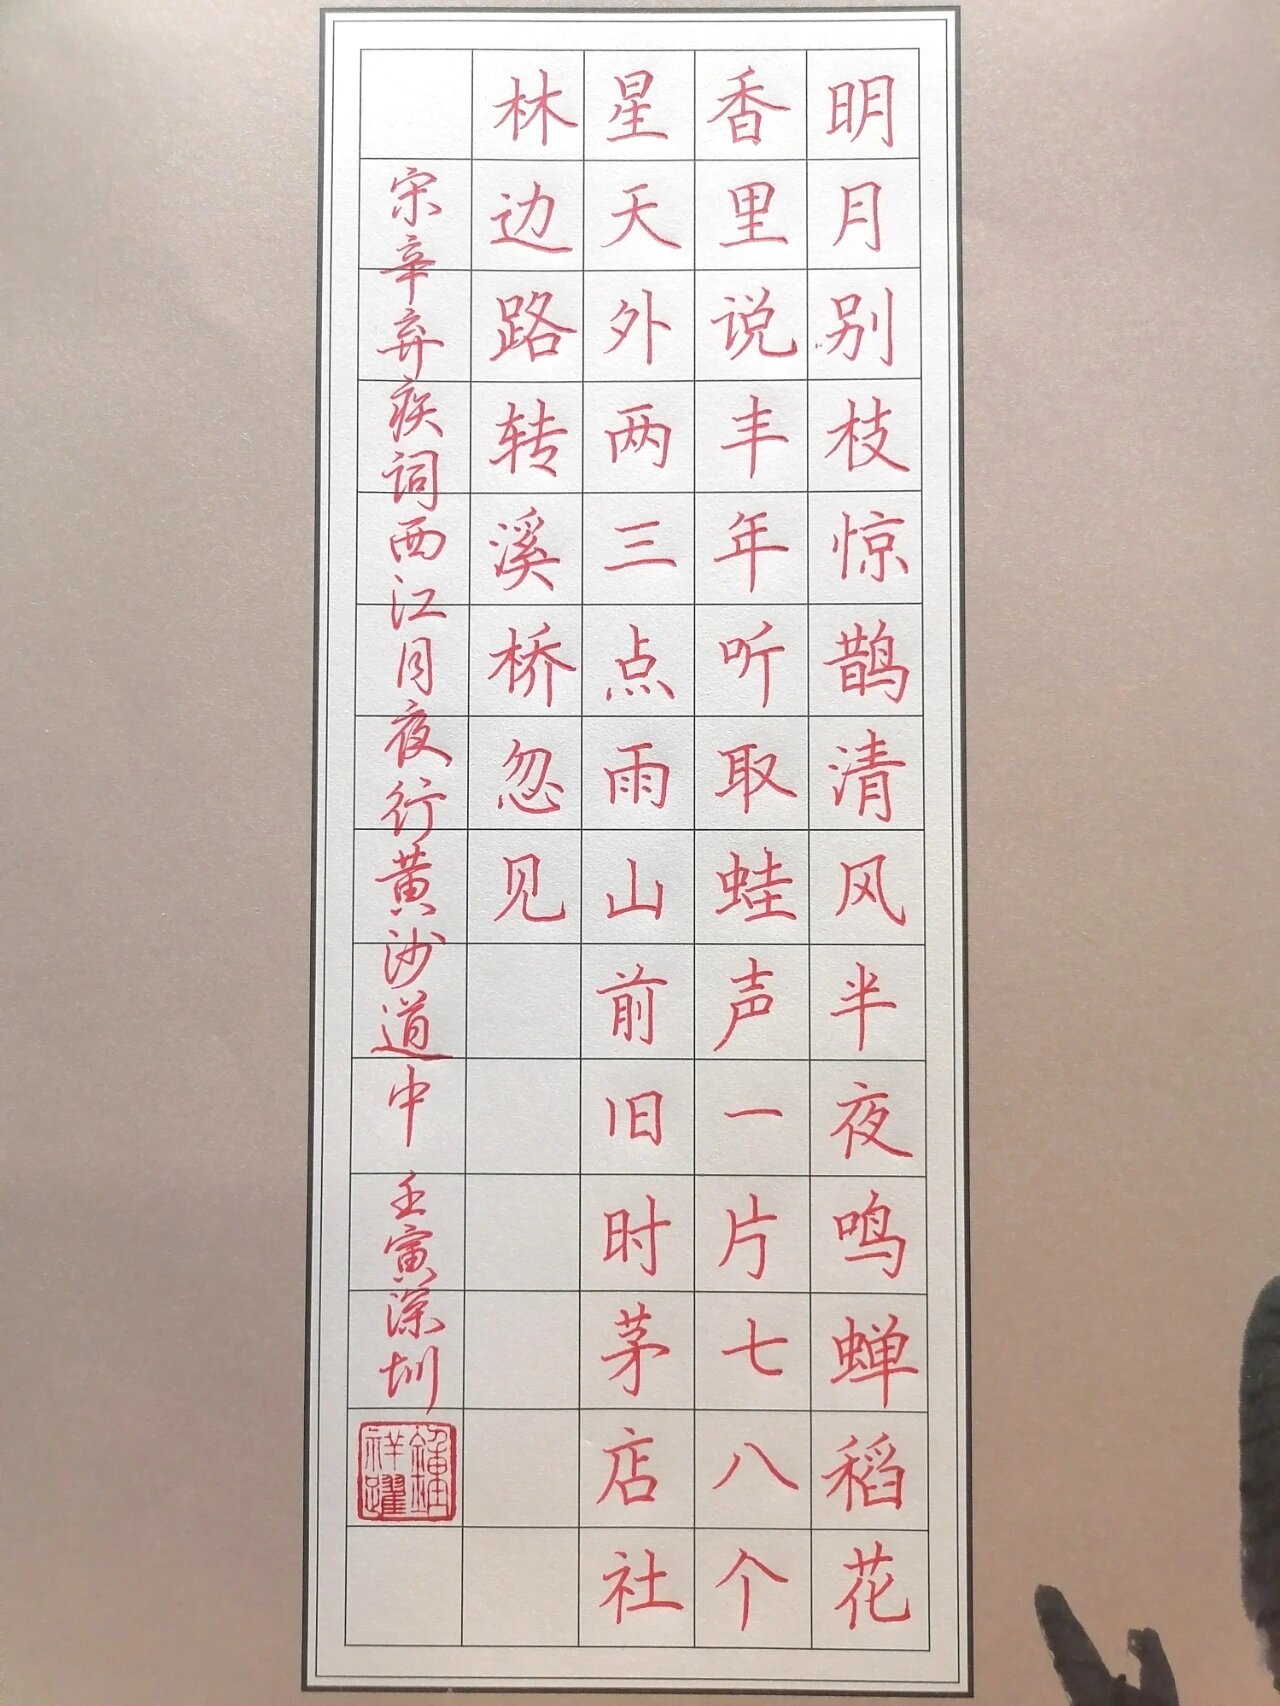 明月别枝惊鹊清风半夜鸣蝉稻花
香里说丰年听取蛙声一片七八个
星天外两三点雨山前旧时茅店社
林边路转溪桥忽见
宋辛弃疾词西江月夜行黄沙道中 壬寅深圳
鍾祥躍